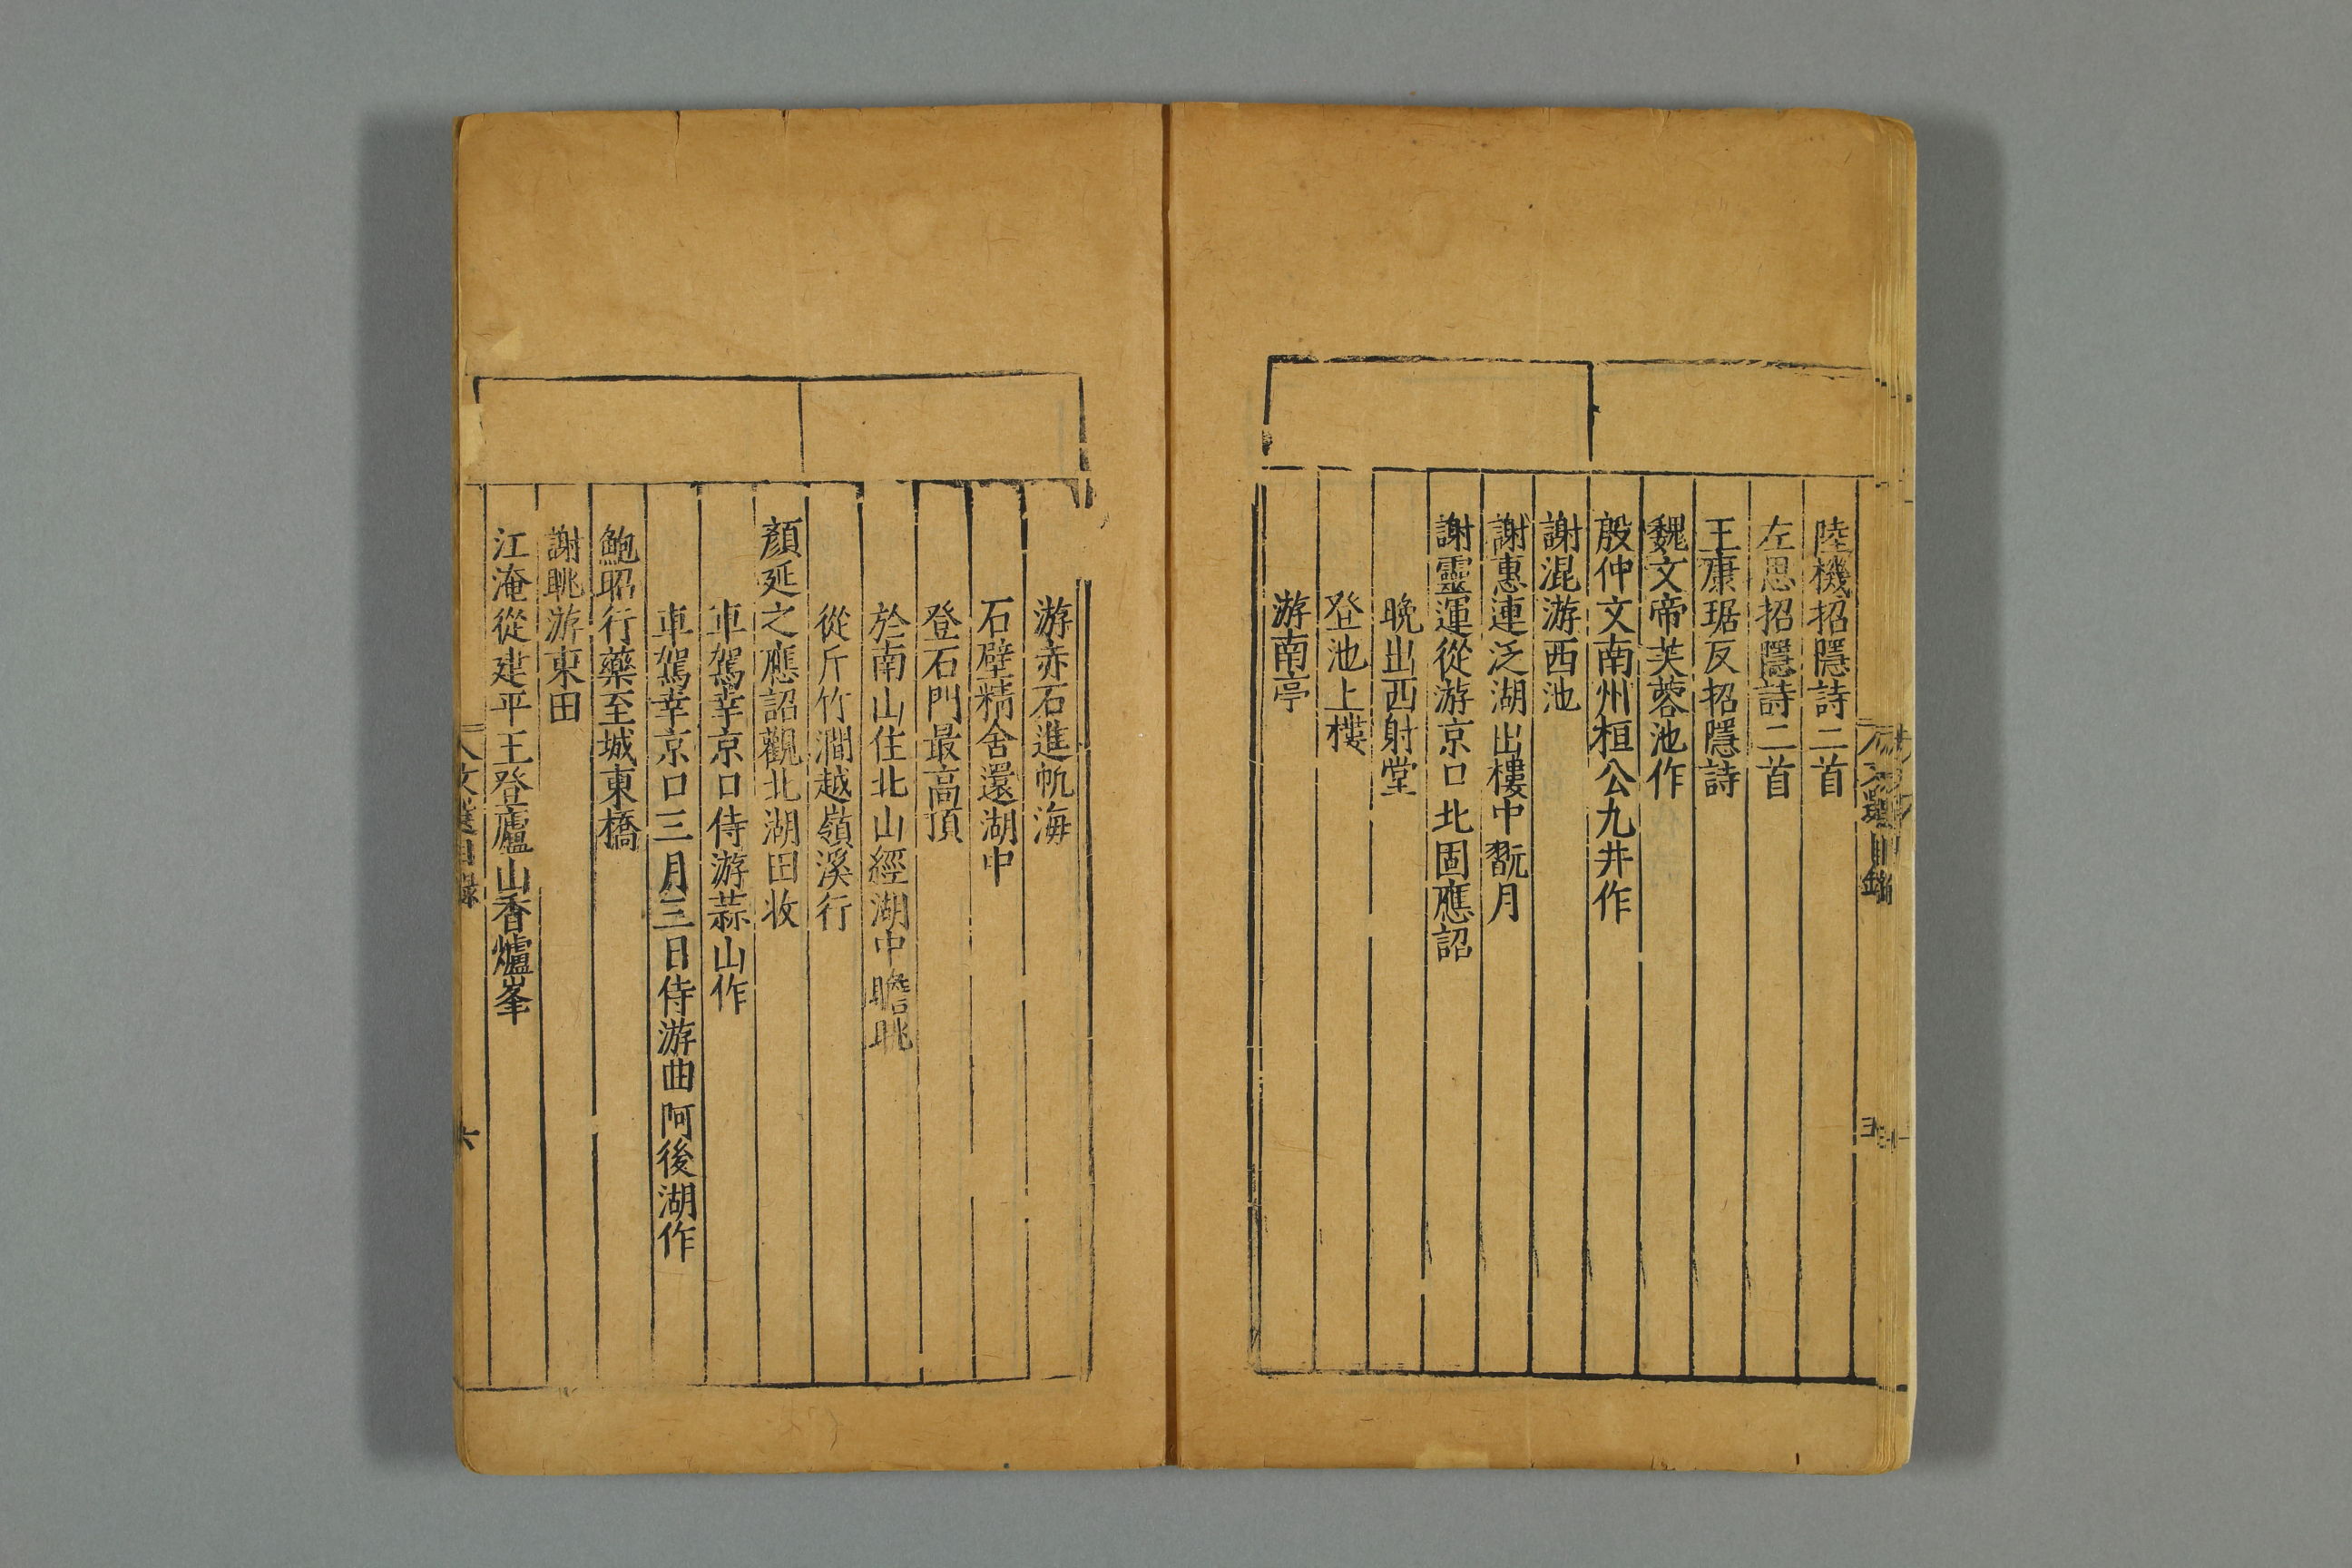 陸機招隱詩二首
左思招隱詩二首
王康琚反招隱詩
魏文帝芙蓉池作
殷仲文南州桓公九井作
謝混游西池
謝惠連泛湖出樓中翫月
謝靈運從游京口北固應詔
晚出西射堂
登池上樓
游南亭
游赤石進帆海
石壁精舍還湖中
登石門最高頂
於南山住北山經湖中瞻眺
從斤竹澗越嶺溪行
顏延之應詔觀北湖田收
車駕幸京口侍游蒜山作
車駕幸京口三月三日侍游曲阿後湖作
鮑昭行藥至城東橋
謝眺游東田
江淹從建平王登廬山香爐峯
文選目錄
六